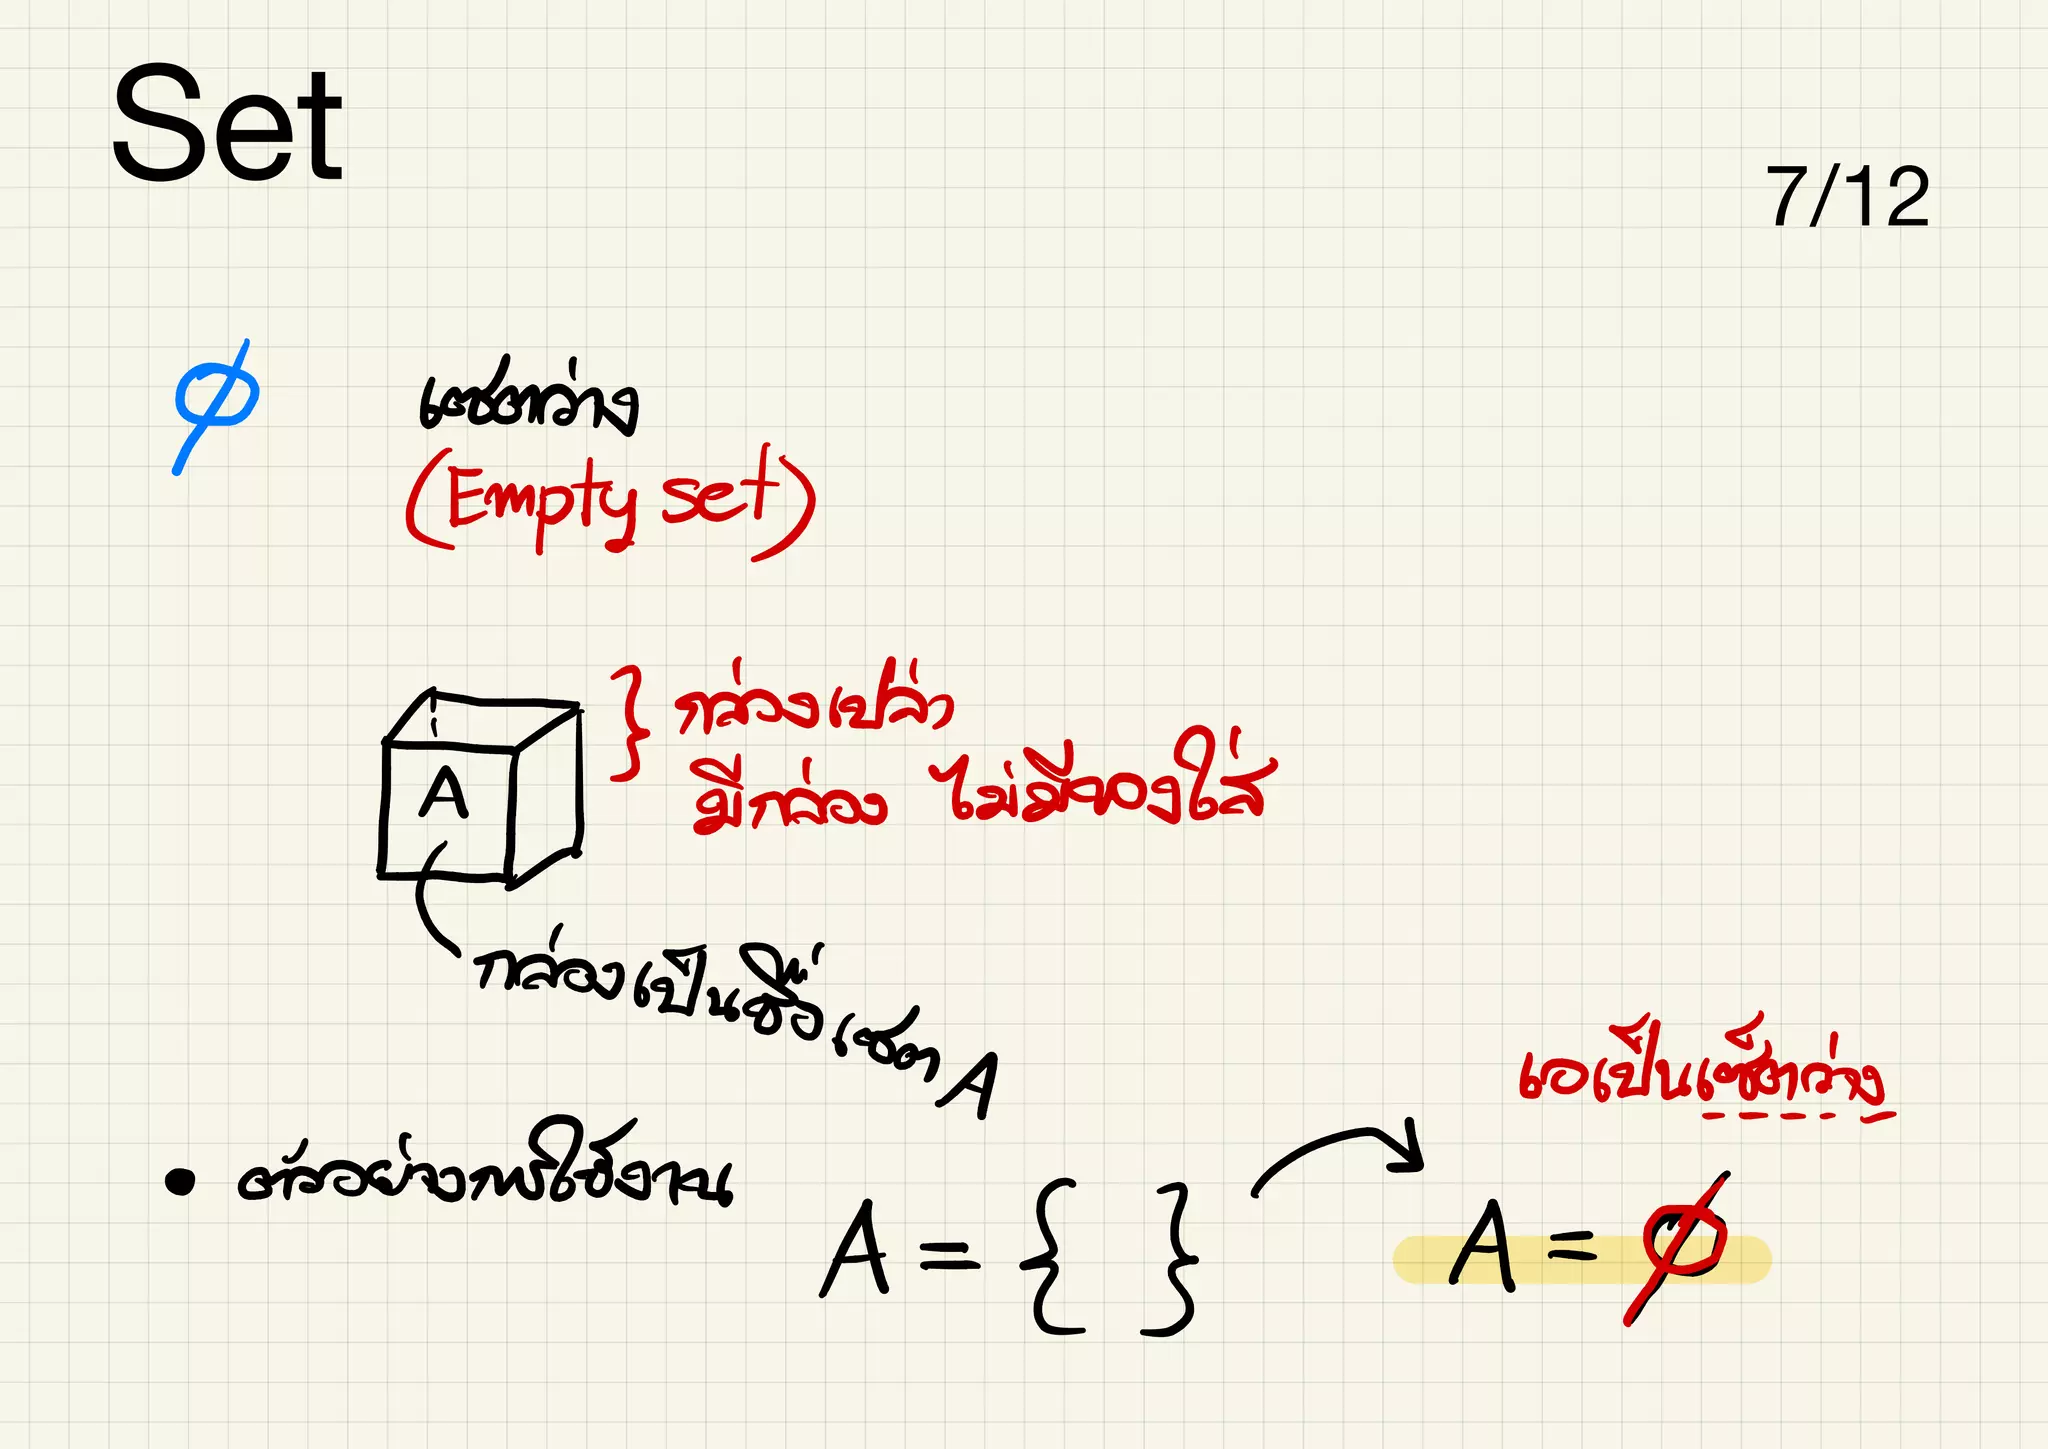 Set
7/12
∅ เซตว่าง
(Empty set)
} กล่องเปล่า
มีกล่อง ไม่มีของใส่
A
กล่องเป็นชื่อเซต A
เอเป็นเซ็ตว่าง
• ตัวอย่างการใช้งาน
A = { } A = ∅